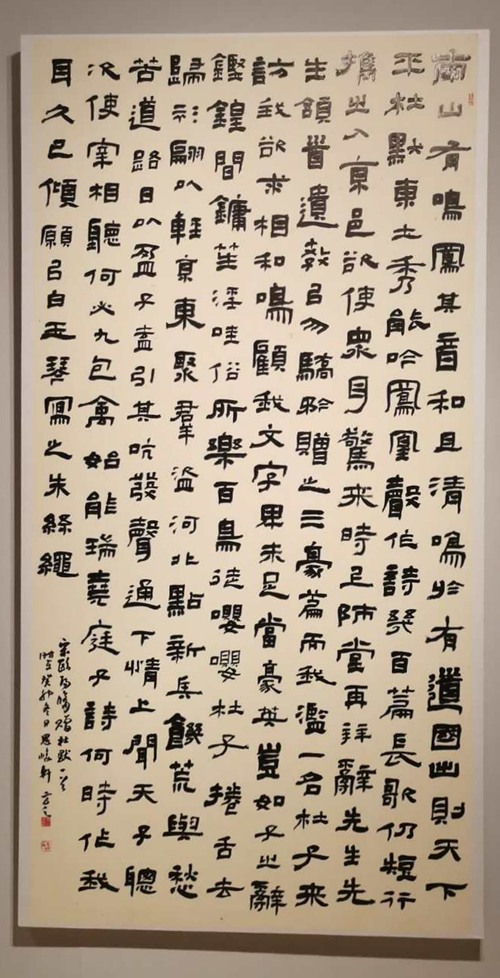 南山有鳴鳳其音和且清鳴於有道國出則天下
平杜默東土秀能吟鳳凰聲作詩幾百篇長歌仍短行
攜之入京邑欲使衆耳驚來時上師堂再拜辭先生先
生頷首遣教以勿驕矜贈之三豪篇而我濫一名杜子來
訪我欲求相和鳴顧我文字卑未足當豪英豈如子之辭
鏗鍠間鏞笙淫哇俗所樂百鳥徒嚶嚶杜子捲舌去
歸衫翩以輕京東聚羣盜河北點新兵饑荒與愁
苦道路日以盈子盍引其吭發聲通下情上聞天子聰
次使宰相聽何必九包禽始能瑞堯庭子詩何時作我
耳久已傾願以白玉琴寫之朱絲繩
宋歐陽脩贈杜默一首
時在癸卯冬日